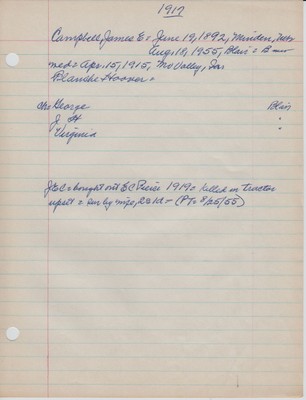 1917
Campbell, James E = June 19, 1892, Minden, Nebr
Aug. 18, 1955, Blair = B
med = Apr. 15, 1915, Mo Valley, Ia
Blanche Hoover =
chr George Blair
J H "
Virginia
JEC = bought out EC 1919 = killed in tractor
upset = sur by wife, 2s 1d = (PT = 8/25/55)